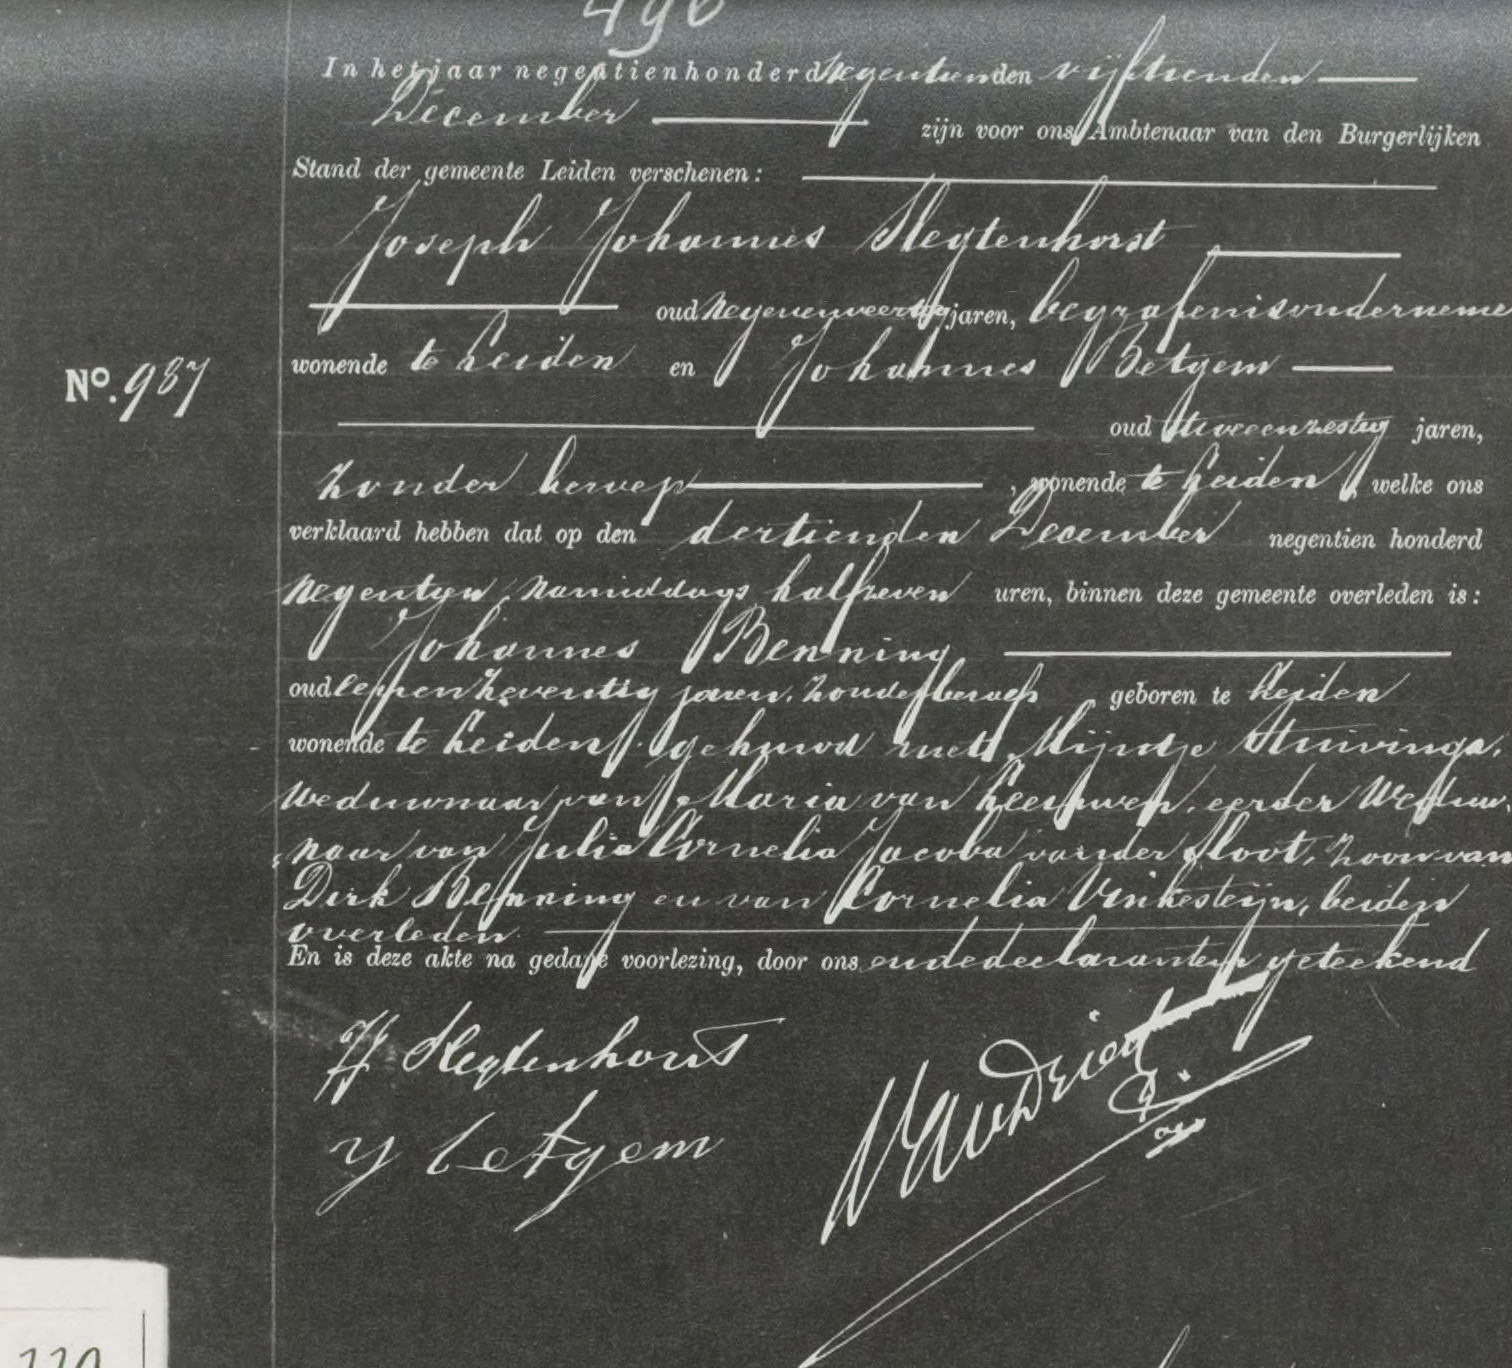 490
In het jaar negentienhonderd negentien den vijftienden
December zijn voor ons Ambtenaar van den Burgerlijken
Stand der gemeente Leiden verschenen:
Joseph Johannes Slegtenhorst
oud negenenveertig jaren, begrafenisonderneme
wonende te Leiden en Johannes Betgem
No. 987
oud tweeenzestig jaren,
zonder beroep, wonende te Leiden, welke ons
verklaard hebben dat op den dertienden December negentien honderd
negentien, namiddags halfzeven uren, binnen deze gemeente overleden is:
Johannes Benning
oud zeventig jaren, zonder beroep geboren te Leiden
wonende te Leiden, gehuwd met Mijntje Stuivinga,
weduwnaar van Maria van Leeuwen, eerder weduw
naar van Julia Cornelia Jacoba van der Sloot, zoon van
Dirk Benning en van Cornelia Vinkesteijn, beiden
overleden.
En is deze akte na gedane voorlezing, door ons en de declaranten geteekend
JJ Slegtenhorst
J Betgem
220